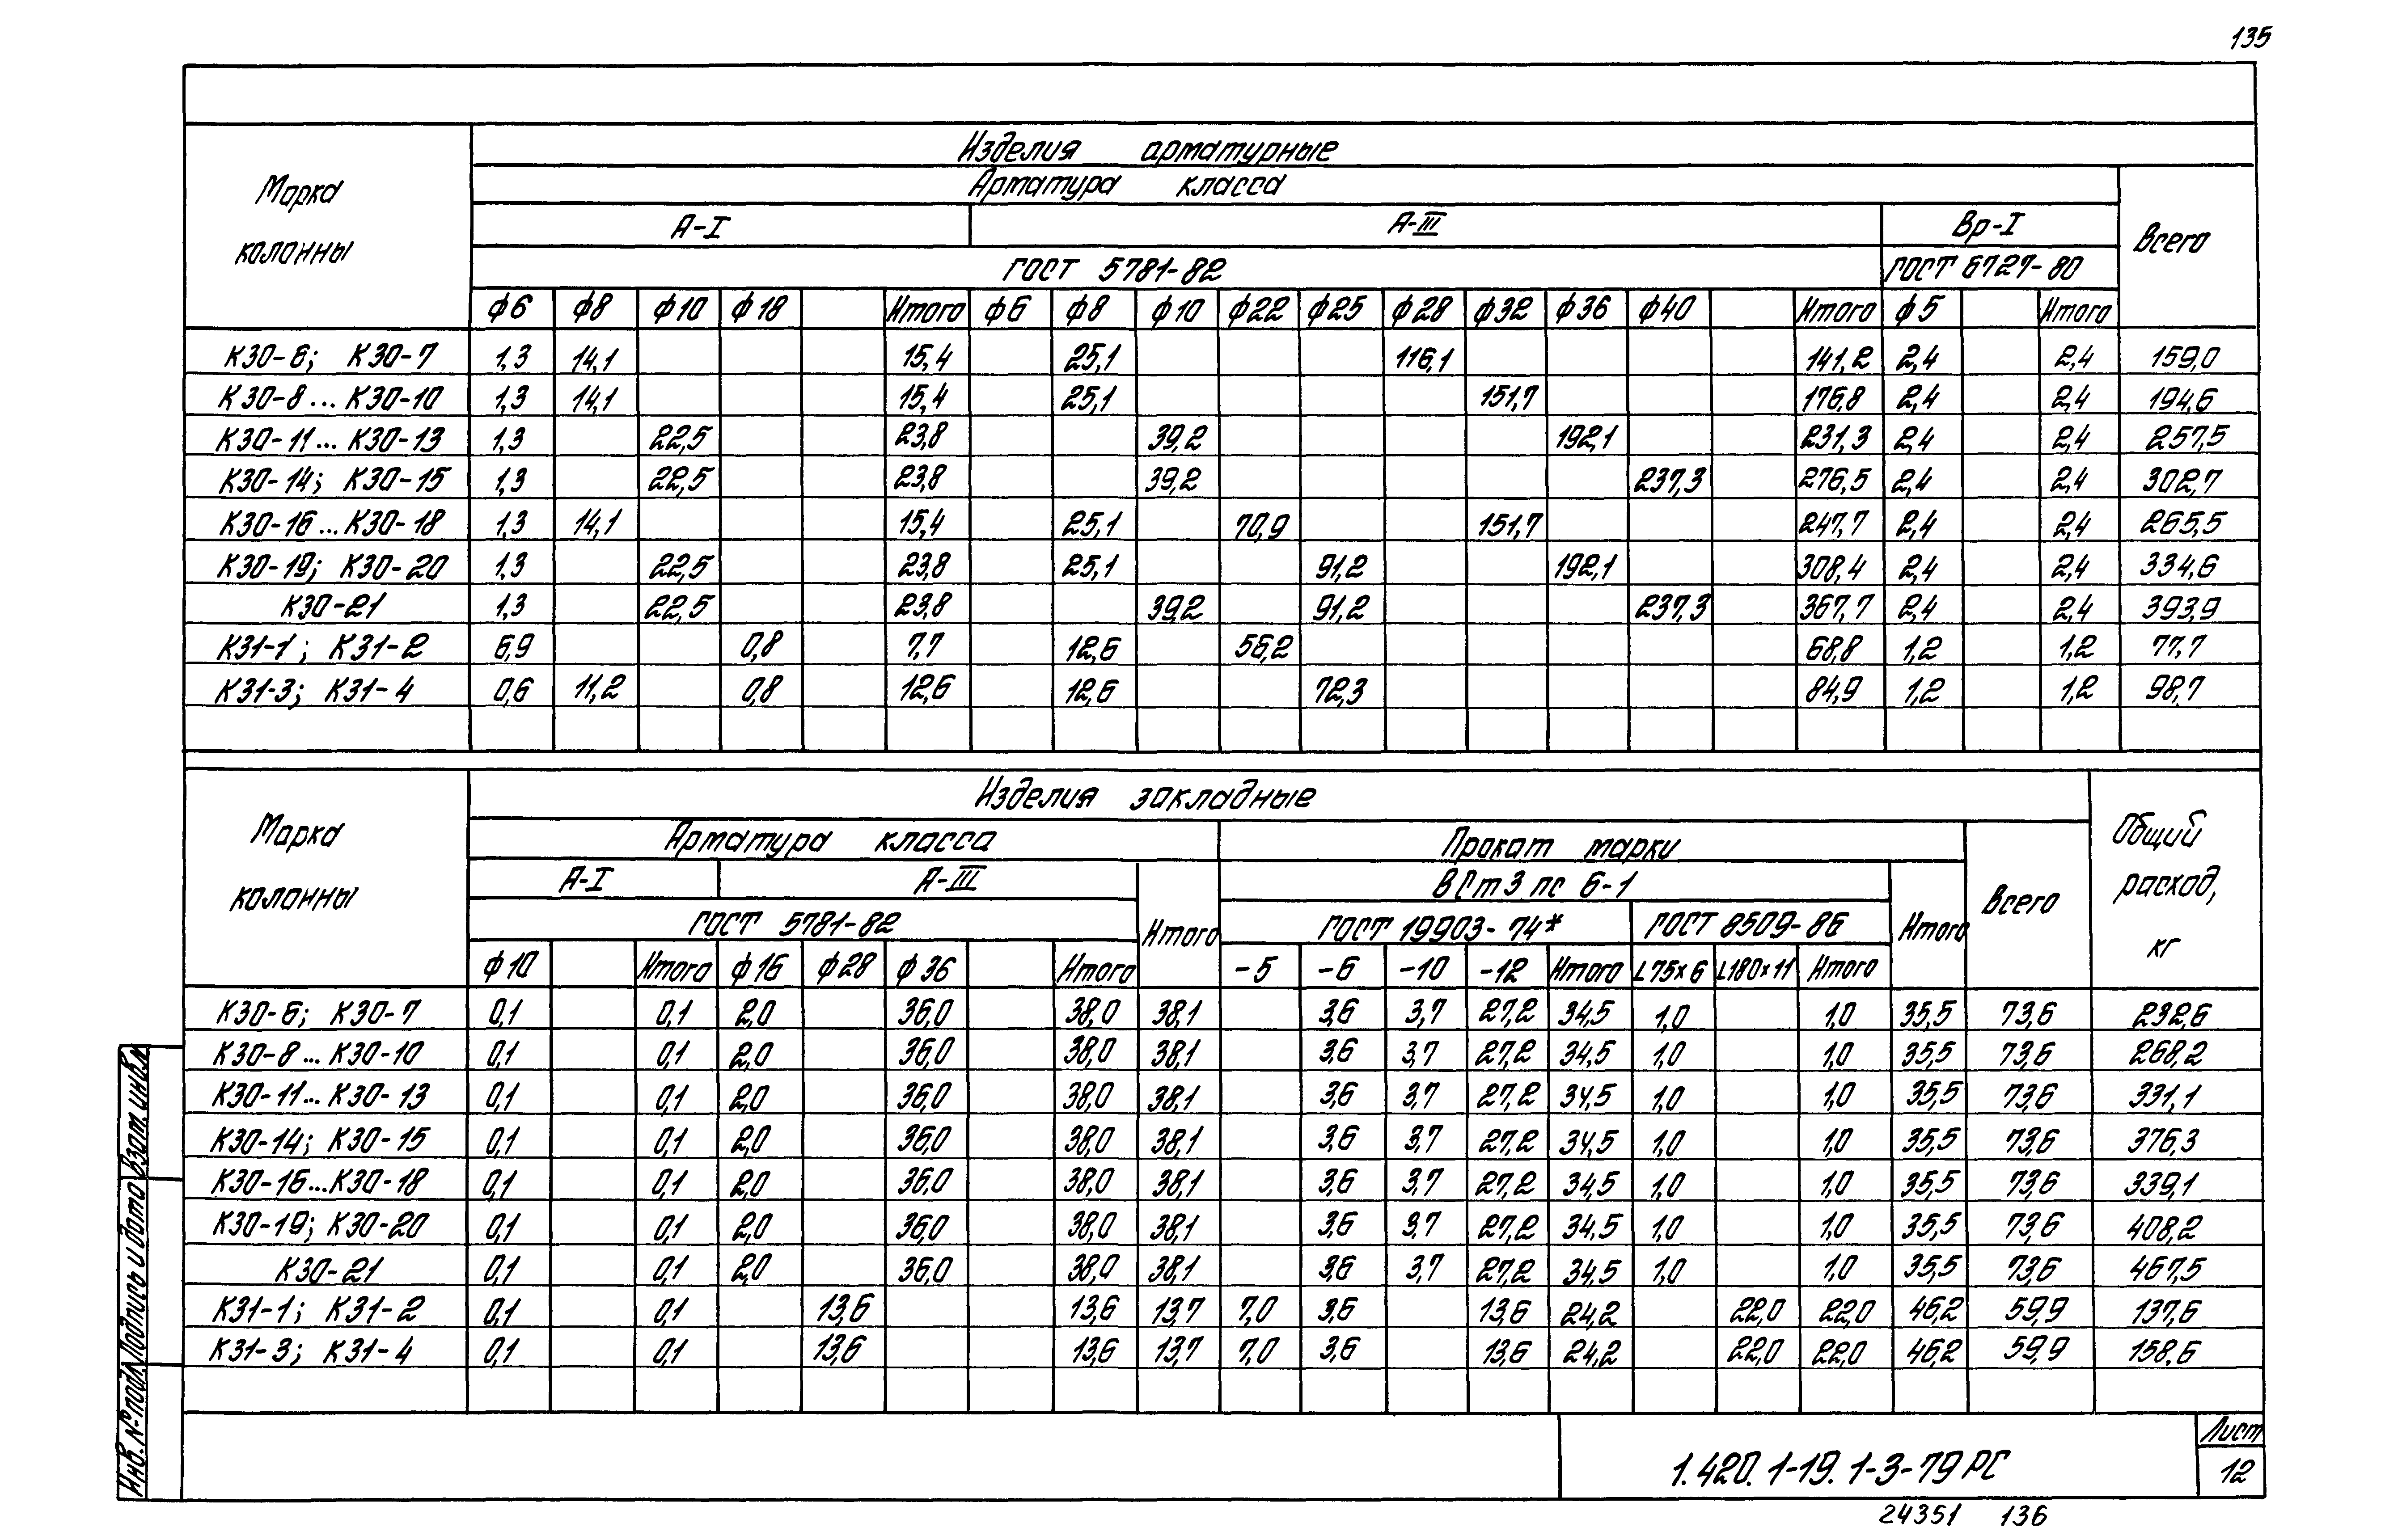 135
Изделия арматурные
Марка колонны
Арматура класса
А-I А-III Вр-I Всего
ГОСТ 5781-82 ГОСТ 6727-80
ф6 ф8 ф10 ф18 Итого ф6 ф8 ф10 ф22 ф25 ф28 ф32 ф36 ф40 Итого ф5 Итого
К30-6; К30-7 1,3 14,1 15,4 25,1 116,1 141,2 2,4 2,4 159,0
К30-8...К30-10 1,3 14,1 15,4 25,1 151,7 176,8 2,4 2,4 194,6
К30-11...К30-13 1,3 22,5 23,8 39,2 192,1 231,3 2,4 2,4 257,5
К30-14; К30-15 1,3 22,5 23,8 39,2 237,3 276,5 2,4 2,4 302,7
К30-16...К30-18 1,3 14,1 15,4 25,1 70,9 151,7 247,7 2,4 2,4 265,5
К30-19; К30-20 1,3 22,5 23,8 25,1 91,2 192,1 308,4 2,4 2,4 334,6
К30-21 1,3 22,5 23,8 39,2 91,2 237,3 367,7 2,4 2,4 393,9
К31-1; К31-2 6,9 0,8 7,7 12,6 56,2 68,8 1,2 1,2 77,7
К31-3; К31-4 0,6 11,2 0,8 12,6 12,6 72,3 84,9 1,2 1,2 98,7
Изделия закладные
Марка колонны
Арматура класса Прокат марки Всего Общий расход, кг
А-I А-III Итого ВСт3 пс 6-1 Итого
ГОСТ 5781-82 ГОСТ 19903-74* ГОСТ 8509-86
ф10 Итого ф16 ф28 ф36 Итого -5 -6 -10 -12 Итого L75×6 L180×11 Итого
К30-6; К30-7 0,1 0,1 2,0 36,0 38,0 38,1 3,6 3,7 27,2 34,5 1,0 1,0 35,5 73,6 232,6
К30-8...К30-10 0,1 0,1 2,0 36,0 38,0 38,1 3,6 3,7 27,2 34,5 1,0 1,0 35,5 73,6 268,2
К30-11...К30-13 0,1 0,1 2,0 36,0 38,0 38,1 3,6 3,7 27,2 34,5 1,0 1,0 35,5 73,6 331,1
К30-14; К30-15 0,1 0,1 2,0 36,0 38,0 38,1 3,6 3,7 27,2 34,5 1,0 1,0 35,5 73,6 376,3
К30-16...К30-18 0,1 0,1 2,0 36,0 38,0 38,1 3,6 3,7 27,2 34,5 1,0 1,0 35,5 73,6 339,1
К30-19; К30-20 0,1 0,1 2,0 36,0 38,0 38,1 3,6 3,7 27,2 34,5 1,0 1,0 35,5 73,6 408,2
К30-21 0,1 0,1 2,0 36,0 38,0 38,1 3,6 3,7 27,2 34,5 1,0 1,0 35,5 73,6 467,5
К31-1; К31-2 0,1 0,1 13,6 13,6 13,7 7,0 3,6 13,6 24,2 22,0 22,0 46,2 59,9 137,6
К31-3; К31-4 0,1 0,1 13,6 13,6 13,7 7,0 3,6 13,6 24,2 22,0 22,0 46,2 59,9 158,6
Инв. № подл. Подпись и дата Взам. инв. №
1.420.1-19.1-3-79РС
Лист
12
24351 136